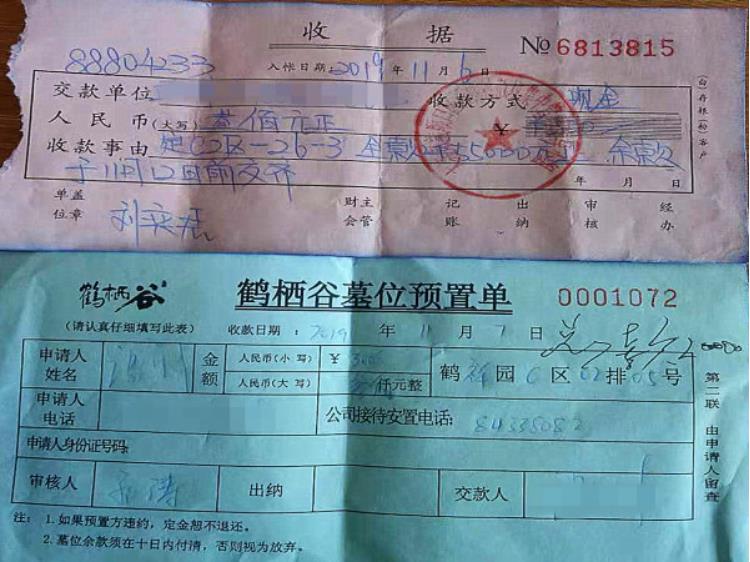 收 据 No 6813815
88804233
入帐日期：2019 年 11 月 6 日
交款单位 收款方式 现金
人民币(大写) 叁佰元正 ¥
收款事由 定C2区-26-3 全款 55000元 余款
于11月12日前交齐 年 月 日
(白)存根(粉)客户
单盖 财主 记 出 审 经
位章 会管 账 纳 核 办
鹤栖谷 鹤栖谷墓位预置单 0001072
(请认真仔细填写此表) 收款日期： 2019 年 11 月 7 日
申请人姓名 金额 人民币(小写) ¥ 鹤 园 C 区 02 排 05 号
人民币(大写) 仟元整
申请人电话 公司接待安置电话: 84338082
申请人身份证号码:
审核人 出纳 交款人
第二联 由申请人留查
注： 1.如果预置方违约，定金恕不退还。
2.墓位余款须在十日内付清，否则视为放弃。